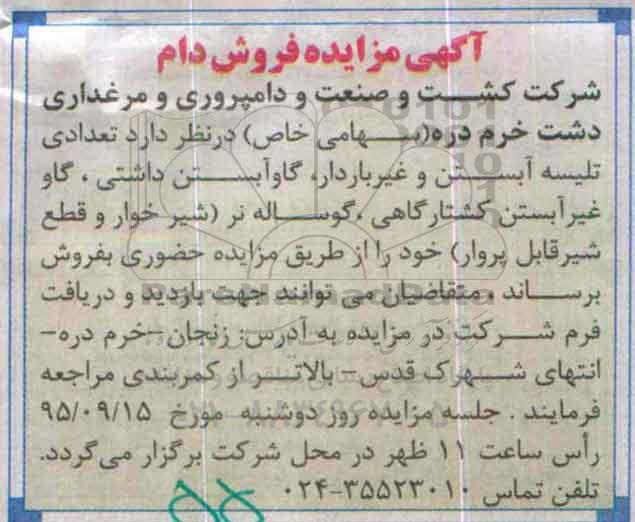 آگهی مزایده فروش دام
شرکت کشت و صنعت و دامپروری و مرغداری
دشت خرم دره(سهامی خاص) درنظر دارد تعدادی
تلیسه آبستن و غیرباردار، گاوآبستن داشتی ، گاو
غیرآبستن کشتارگاهی ،گوساله نر (شیر خوار و قطع
شیرقابل پروار) خود را از طریق مزایده حضوری بفروش
برساند . متقاضیان می توانند جهت بازدید و دریافت
فرم شرکت در مزایده به آدرس: زنجان-خرم دره-
انتهای شهرک قدس- بالاتر از کمربندی مراجعه
فرمایند . جلسه مزایده روز دوشنبه مورخ ۹۵/۰۹/۱۵
رأس ساعت ۱۱ ظهر در محل شرکت برگزار می‌گردد.
تلفن تماس ۳۵۵۲۳۰۱۰-۰۲۴